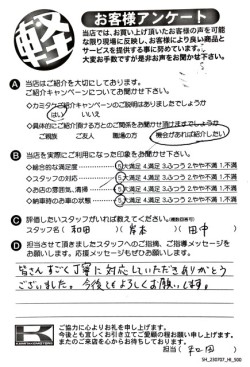 軽
お客様アンケート
当店では、お買い上げ頂いたお客様の声を可能
な限り現場に反映し、お客様により良い商品と
サービスを提供する事に努めています。
大変お手数ですが是非お声をお聞かせ下さい。
A 当店はご紹介を大切にしております。
ご紹介キャンペーンについてお聞かせ下さい。
◇カミタケご紹介キャンペーンのご説明はありましたでしょうか
はい いいえ
◇具体的にご紹介頂ける方とのご関係をお聞かせ頂けますでしょうか
ご親族 ご友人 職場の方 機会があれば紹介したい
B 当店を実際にご利用になった印象をお聞かせ下さい。
◇総合的な満足度 5.大満足 4.満足 3.ふつう 2.やや不満 1.不満
◇スタッフの対応 5.大満足 4.満足 3.ふつう 2.やや不満 1.不満
◇お店の雰囲気、清掃 5.大満足 4.満足 3.ふつう 2.やや不満 1.不満
◇納車時のお車の状態 5.大満足 4.満足 3.ふつう 2.やや不満 1.不満
C 評価したいスタッフがいれば教えてください。(複数回答可)
スタッフ名( 和田 )( 岸本 )( 田中 )
D 担当させて頂きましたスタッフへのご指摘、ご指導メッセージを
お願いします。応援メッセージもぜひお願いします。
皆さんすごく丁寧に対応していただきありがとう
ございました。今後ともよろしくお願いします。
ご協力に心よりお礼を申し上げます。
今後とも宜しくお引き立てご愛顧の程お願い申し上げます。
またのご来店を心からお待ちしております。
担当( 和田 )
SH_230707_HI_500